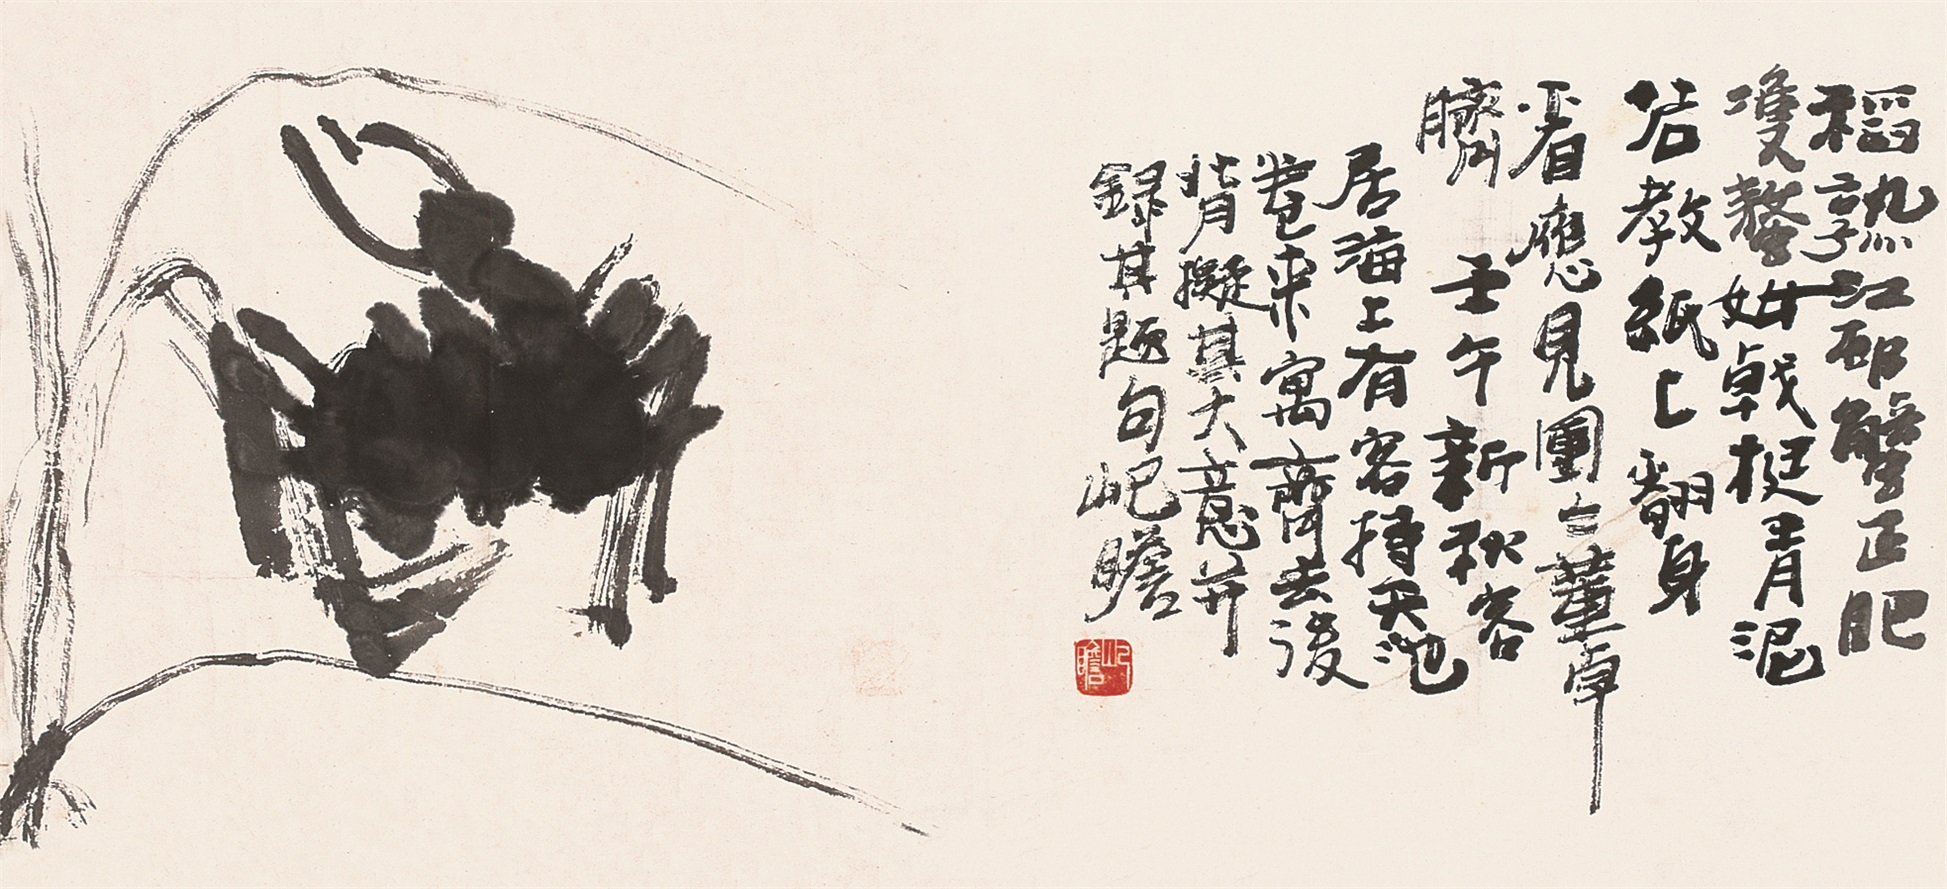 稻熟江邨蟹正肥
雙螯如戟挺青泥
若教紙上翻身
看應見團々董卓
臍 壬午新秋客
居海上有客持天池
卷来寓齋去後
背擬其大意并
録其题句屺瞻
屺瞻